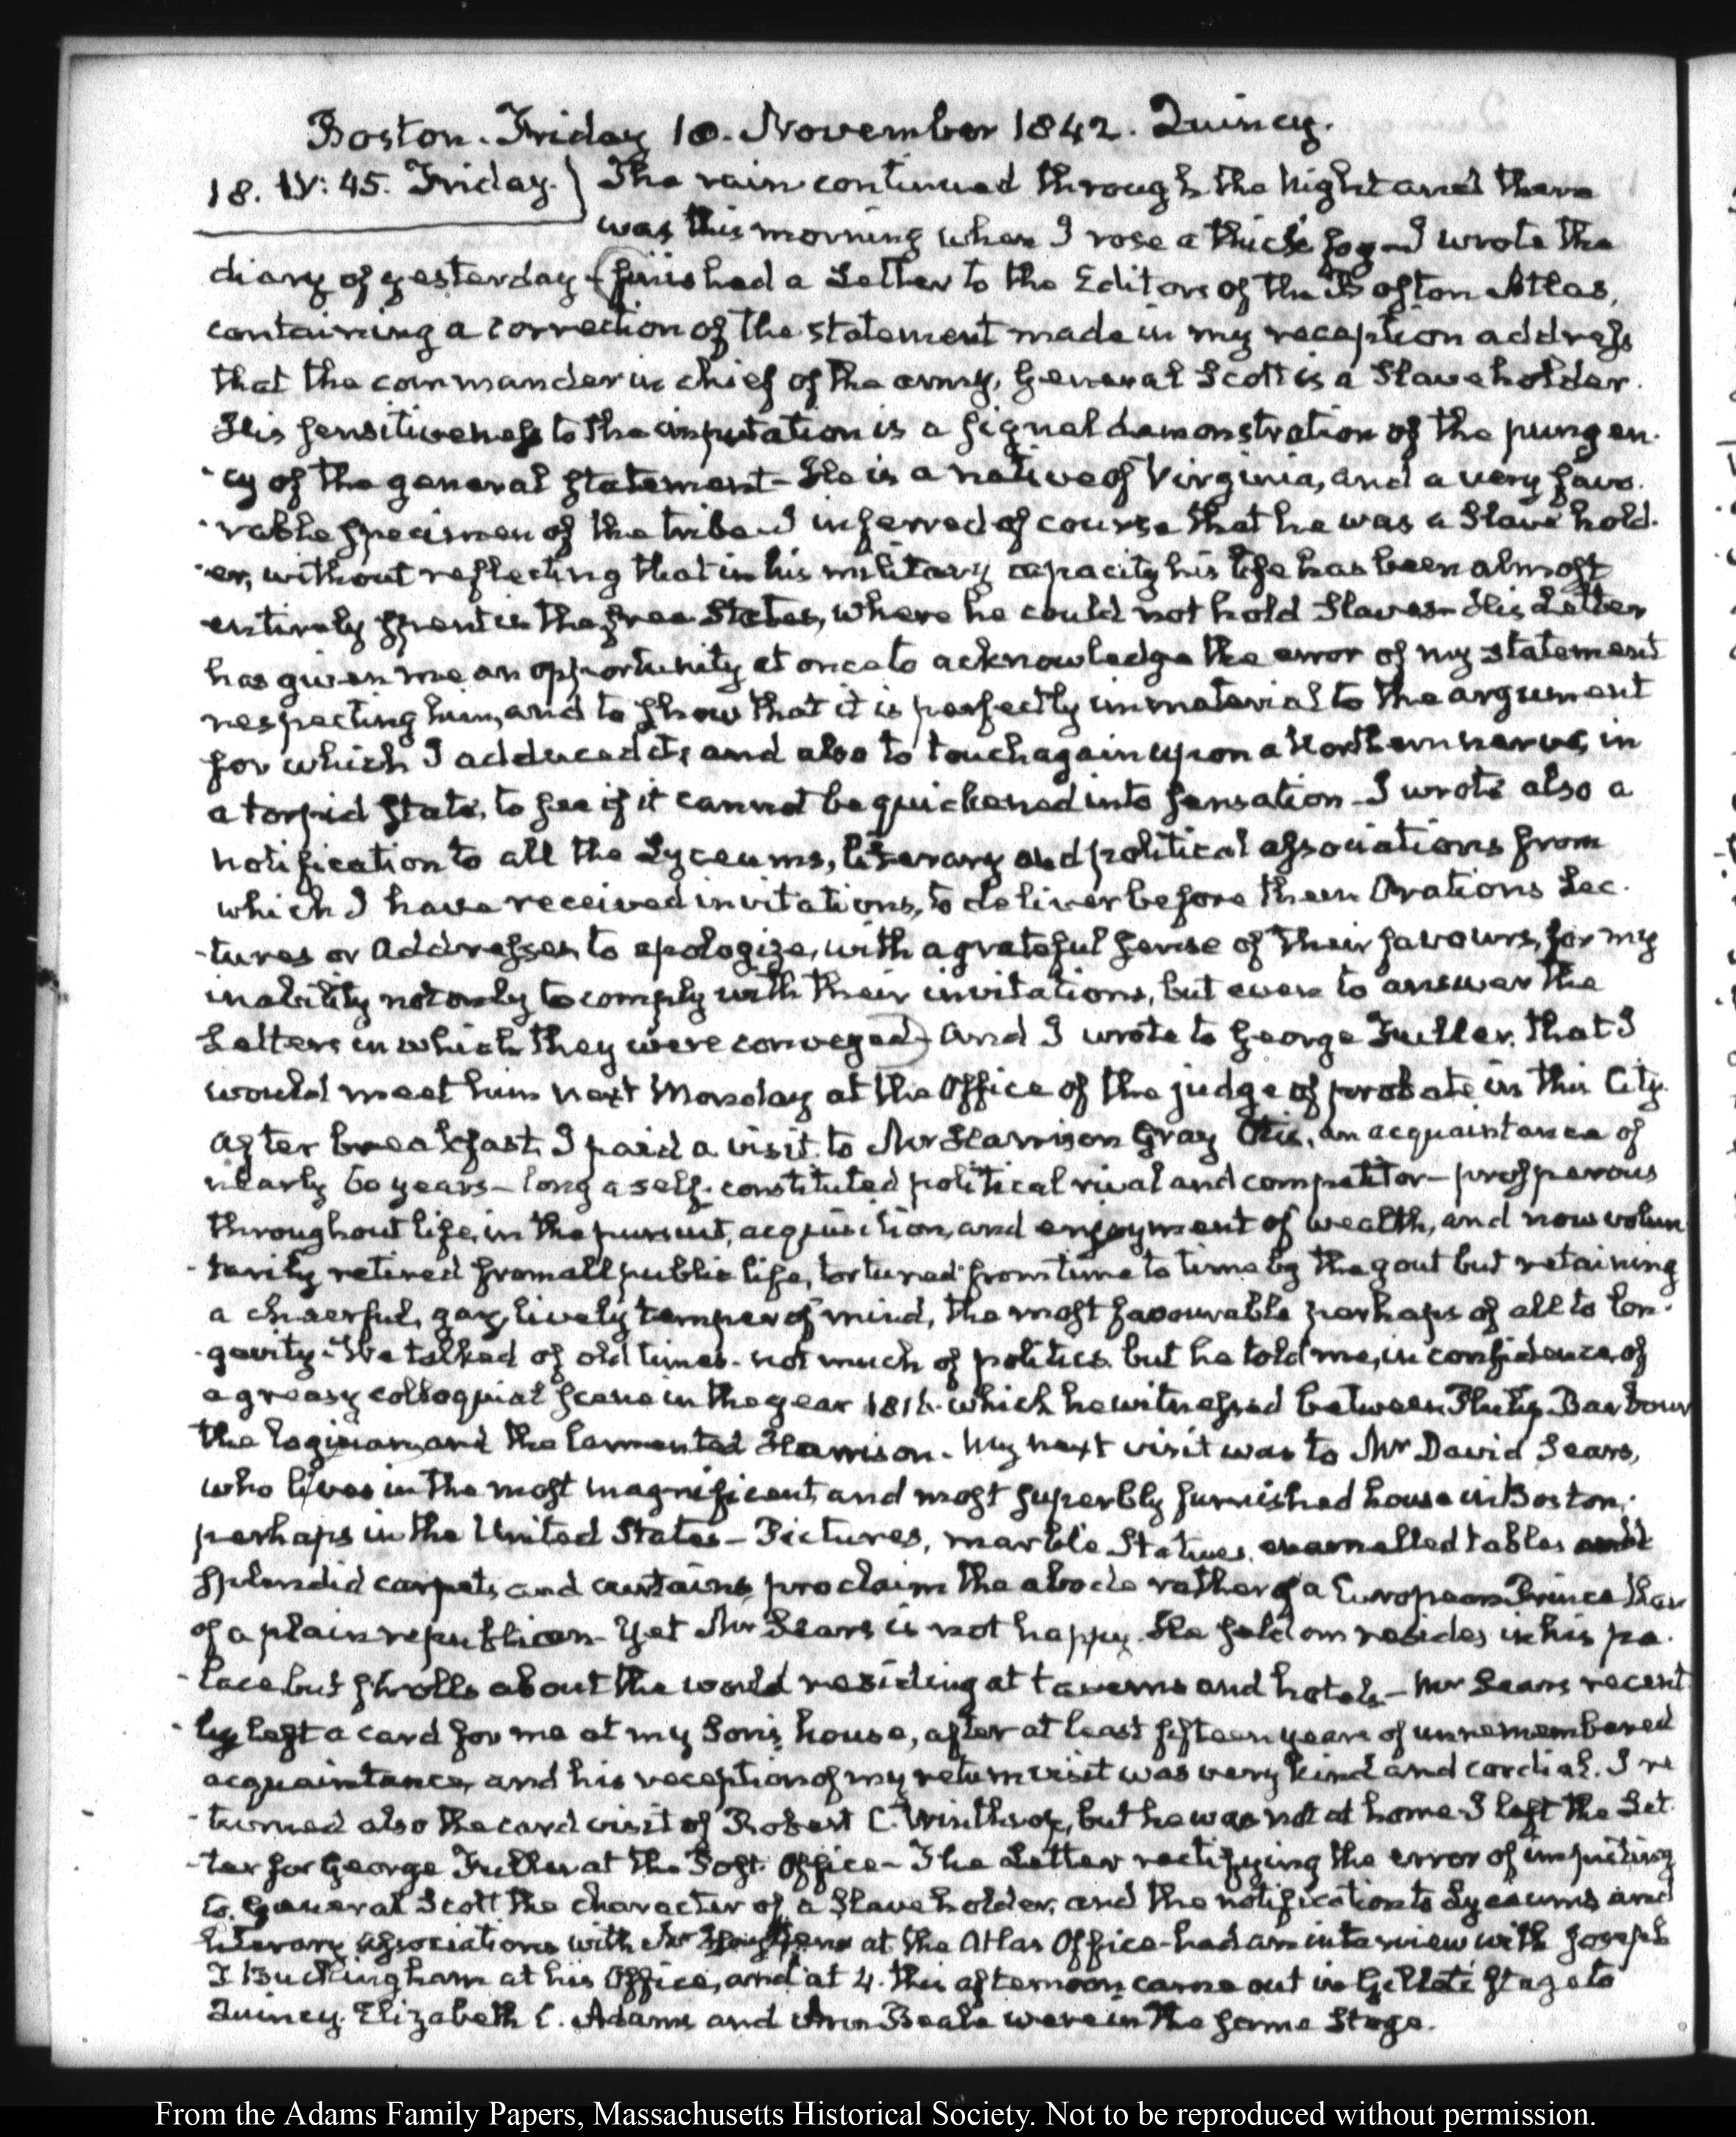 Boston. Friday 18. November 1842. Quincy.
18. IV: 45. Friday. The rain continued through the Night and there
was this morning when I rose a thick fog – I wrote the
diary of yesterday – finished a Letter to the Editors of the Boston Atlas,
containing a correction of the statement made in my reception address
that the commander in chief of the army, General Scott is a Slave holder.
His sensitiveness to the imputation is a signal demonstration of the pungen-
-cy of the general statement – He is a native of Virginia, and a very favo-
-rable specimen of the tribe – I inferred of course that he was a Slave hold-
-er, without reflecting that in his military capacity his life has been almost
entirely spent in the free States, where he could not hold Slaves – His Letter
has given me an opportunity at once to acknowledge the error of my statement
respecting him, and to show that it is perfectly immaterial to the argument
for which I adduced it, and also to touch again upon a Northern nerve, in
a torpid state, to see if it cannot be quickened into sensation – I wrote also a
notification to all the Lyceums, literary and political associations from
which I have received invitations, to deliver before them Orations Lec-
-tures or Addresses, to apologize, with a grateful sense of their favours, for my
inability not only to comply with their invitations, but even to answer the
Letters in which they were conveyed – and I wrote to George Fuller, that I
would meet him next Monday at the Office of the judge of probate in this City.
After breakfast I paid a visit to Mr Harrison Gray Otis, an acquaintance of
nearly 60 years – long a self-constituted political rival and competitor – prosperous
throughout life, in the pursuit, acquisition, and enjoyment of wealth, and now volun
-tarily retired from all public life, tortured from time to time by the gout but retaining
a cheerful, gay, lively temper of mind, the most favourable perhaps of all to lon-
-gevity – We talked of old times – not much of politics but he told me, in confidence, of
a greasy colloquial scene in the year 1816. which he witnessed between Philip Barbour
the logician, and the lamented Harrison – My next visit was to Mr David Sears,
who lives in the most magnificent, and most superbly furnished house in Boston;
perhaps in the United States – Pictures, marble Statues, enamelled tables and
splendid carpets and curtains, proclaim the abode rather of a European Prince than
of a plain republican – Yet Mr Sears is not happy. He seldom resides in his pa-
-lace but strolls about the world residing at taverns and hotels – Mr Sears recent
-ly left a card for me at my Son's house, after at least fifteen years of unremembered
acquaintance, and his reception of my return visit was very kind and cordial. I re
-turned also the card visit of Robert C. Winthrop, but he was not at home – I left the Let
-ter for George Fuller at the Post-Office – The Letter rectifying the error of imputing
to General Scott the character of a Slave holder, and the notification to Lyceums and
literary associations with Mr at the Atlas Office – had an interview with Joseph
T Buckingham at his Office, and at 4. this afternoon came out in Gillett's stage to
Quincy. Elizabeth C. Adams and Ann Beale were in the same Stage.
From the Adams Family Papers, Massachusetts Historical Society. Not to be reproduced without permission.